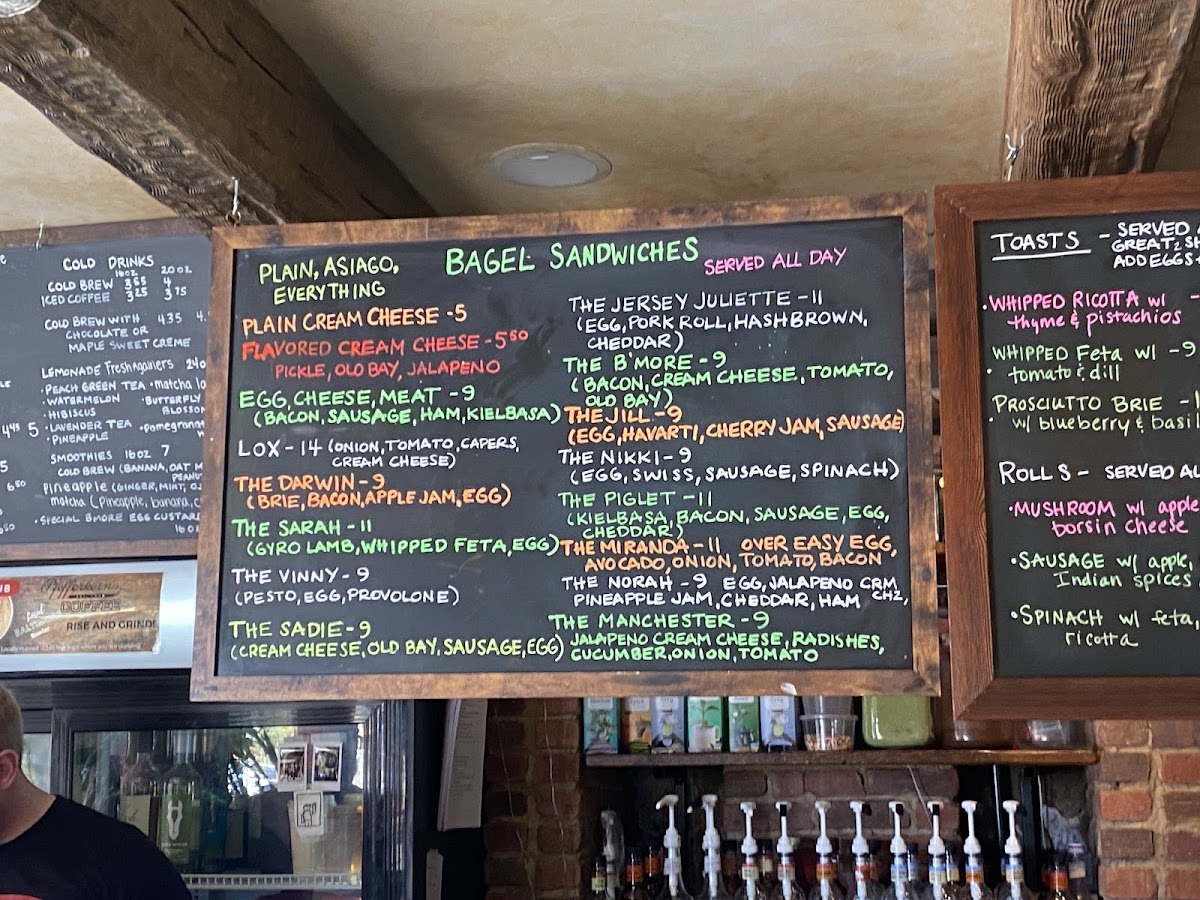 COLD DRINKS
16oz 20oz
COLD BREW 3 65 4
ICED COFFEE 3 25 3 75
COLD BREW WITH 4 35 4.
CHOCOLATE OR
MAPLE SWEET CREME
LEMONADE Freshngainers 24o
• PEACH GREEN TEA • matcha
• WATERMELON • BUTTERFLY
• HIBISCUS BLOSSOM
4 45 5 • LAVENDER TEA
• PINEAPPLE
SMOOTHIES 16oz 7
COLD BREW (BANANA, OAT M
pineapple (GINGER, MINT,
matcha (pineapple, banana,
• SPECIAL BMORE EGG CUSTARD
BAGEL SANDWICHES
SERVED ALL DAY
PLAIN, ASIAGO,
EVERYTHING
PLAIN CREAM CHEESE - 5
FLAVORED CREAM CHEESE - 5 50
PICKLE, OLD BAY, JALAPENO
EGG, CHEESE, MEAT - 9
(BACON, SAUSAGE, HAM, KIELBASA)
LOX - 14 (ONION, TOMATO, CAPERS,
CREAM CHEESE)
THE DARWIN - 9
(BRIE, BACON, APPLE JAM, EGG)
THE SARAH - 11
(GYRO LAMB, WHIPPED FETA, EGG)
THE VINNY - 9
(PESTO, EGG, PROVOLONE)
THE SADIE - 9
(CREAM CHEESE, OLD BAY, SAUSAGE, EGG)
THE JERSEY JULIETTE - 11
(EGG, PORK ROLL, HASHBROWN,
CHEDDAR)
THE B'MORE - 9
(BACON, CREAM CHEESE, TOMATO,
OLD BAY)
THE JILL - 9
(EGG, HAVARTI, CHERRY JAM, SAUSAGE)
THE NIKKI - 9
(EGG, SWISS, SAUSAGE, SPINACH)
THE PIGLET - 11
(KIELBASA, BACON, SAUSAGE, EGG,
CHEDDAR)
THE MIRANDA - 11 OVER EASY EGG,
AVOCADO, ONION, TOMATO, BACON
THE NORAH - 9 EGG, JALAPENO CRM CHZ,
PINEAPPLE JAM, CHEDDAR, HAM
THE MANCHESTER - 9
JALAPENO CREAM CHEESE, RADISHES,
CUCUMBER, ONION, TOMATO
TOASTS - SERVED
GREAT 2 SH
ADD EGGS
• WHIPPED RICOTTA w/
thyme & pistachios
• WHIPPED Feta w/ - 9
tomato & dill
• PROSCIUTTO BRIE -
w/ blueberry & basil
ROLLS - SERVED AL
• MUSHROOM w/ apple
borsin cheese
• SAUSAGE w/ apple,
Indian spices
• SPINACH w/ feta,
ricotta
Pfefferkorn's
COFFEE
RISE AND GRIND!